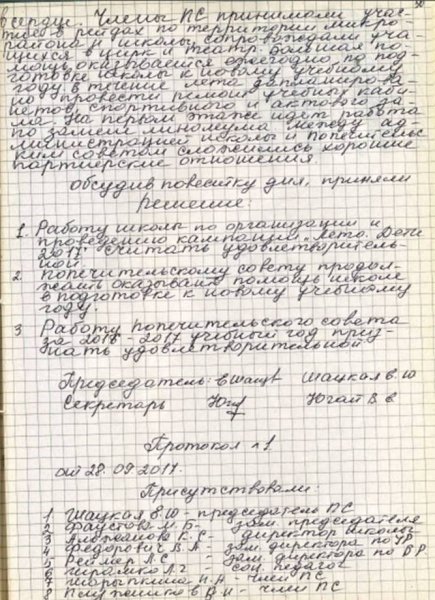 сердце. Члены ПС принимали учас-
тие в рейдах по территории микро-
района и школы, сопровождали уча-
щихся в цирк, театр. Большая по-
мощь оказывается ежегодно по под-
готовке школы к новому учебному
году. В течение лета запланирова-
но провести ремонт учебных каби-
нетов, спортивного и актового за-
ла. На первом этаже идет работа
по замене линолеума. Между ад
министрацией школы и попечительс
ким советом сложились хорошие
партнерские отношения
обсудив повестку дня, приняли
решение:
1. Работу школы по организации и
проведению кампании „Лето. Дети
2017" считать удовлетворитель-
ной.
2. Попечительскому совету продол-
жать оказывать помощь школе
в подготовке к новому учебному
году.
3. Работу попечительского совета
за 2016-2017 учебный год приз-
нать удовлетворительной
Председатель: ЕШацк Шацкая Е.Ю
Секретарь Югай В.С
Протокол №1
от 28.09.2017.
Присутствовали:
1 Шацкая Е.Ю - председатель ПС
2 Фаустова М.Б - зам председателя
3 К.С- директор школы
4 Федорович В.А - зам. директора по УР
5 Реймер Л.С - зам директора по ВР
6 Л.Г - соц. педагог
7 Н.А - член ПС
8 В.И - член ПС